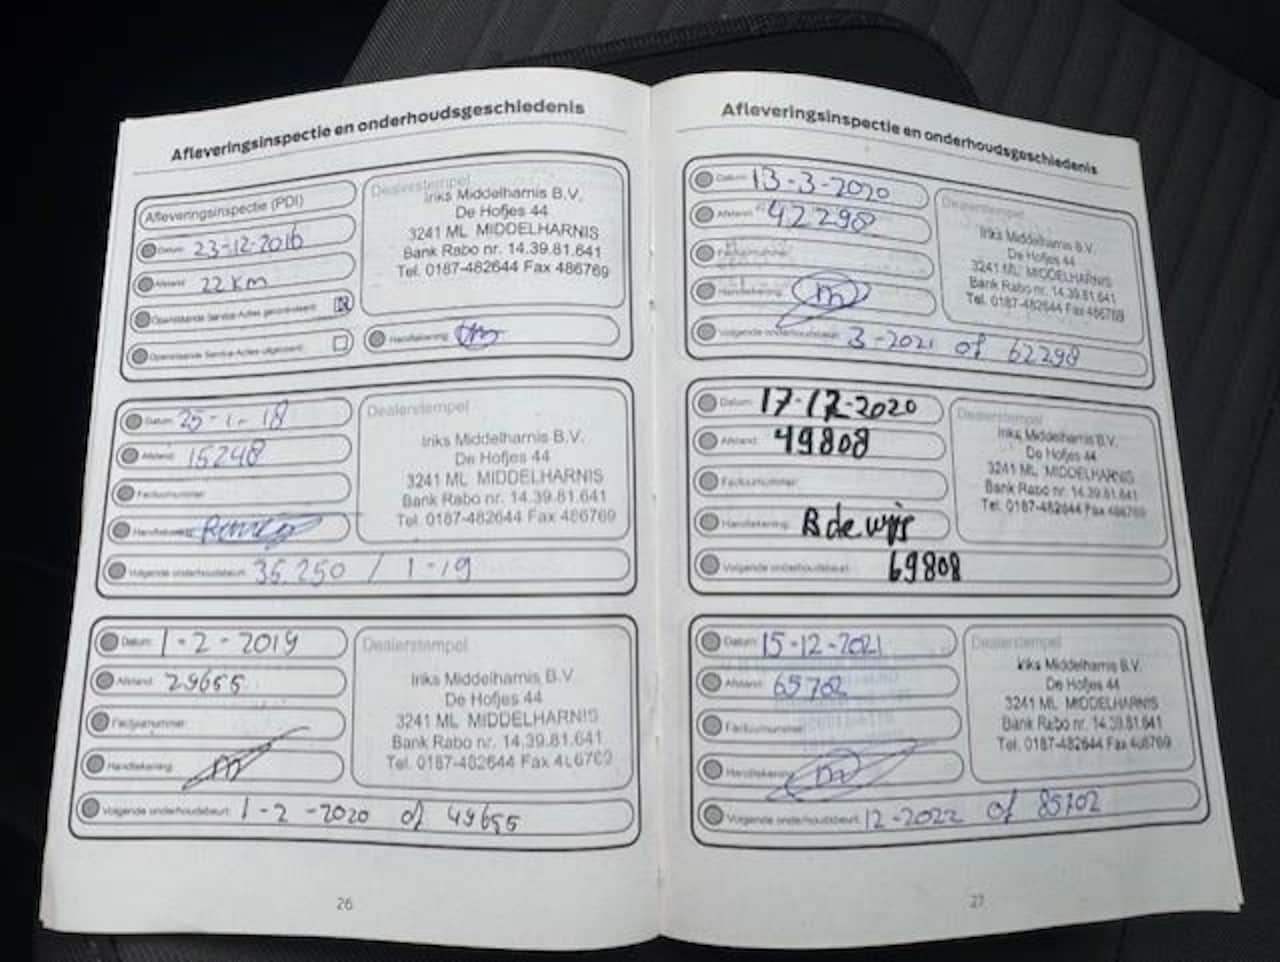 Afleveringsinspectie en onderhoudsgeschiedenis
Afleveringsinspectie (PDI)
Datum: 23-12-2016
Afstand: 22 km
Openstaande Service-Acties gecontroleerd:
Openstaande Service-Acties uitgevoerd:
Dealerstempel
Iriks Middelharnis B.V.
De Hofjes 44
3241 ML MIDDELHARNIS
Bank Rabo nr. 14.39.81.641
Tel. 0187-482644 Fax 486769
Handtekening:
Datum: 25-1-18
Afstand: 15248
Factuurnummer:
Handtekening:
Volgende onderhoudsbeurt: 35.250 / 1-19
Dealerstempel
Iriks Middelharnis B.V.
De Hofjes 44
3241 ML MIDDELHARNIS
Bank Rabo nr. 14.39.81.641
Tel. 0187-482644 Fax 486769
Datum: 1-2-2019
Afstand: 29655
Factuurnummer:
Handtekening:
Volgende onderhoudsbeurt: 1-2-2020 of 49655
Dealerstempel
Iriks Middelharnis B.V.
De Hofjes 44
3241 ML MIDDELHARNIS
Bank Rabo nr. 14.39.81.641
Tel. 0187-482644 Fax
26
Afleveringsinspectie en onderhoudsgeschiedenis
Datum: 13-3-2020
Afstand: 42298
Factuurnummer:
Handtekening:
Volgende onderhoudsbeurt: 3-2021 of 62298
Dealerstempel
Iriks Middelharnis B.V.
De Hofjes 44
3241 ML MIDDELHARNIS
Bank Rabo nr. 14.39.81.641
Tel. 0187-482644 Fax 486769
Datum: 17-12-2020
Afstand: 49808
Factuurnummer:
Handtekening: B de wijs
Volgende onderhoudsbeurt: 69808
Dealerstempel
Iriks Middelharnis B.V.
De Hofjes 44
3241 ML MIDDELHARNIS
Bank Rabo nr. 14.39.81.641
Tel. 0187-482644 Fax 486769
Datum: 15-12-2021
Afstand: 65702
Factuurnummer:
Handtekening:
Volgende onderhoudsbeurt: 12-2022 of 85702
Dealerstempel
Iriks Middelharnis B.V.
De Hofjes 44
3241 ML MIDDELHARNIS
Bank Rabo nr. 14.39.81.641
Tel. 0187-482644 Fax 486769
27